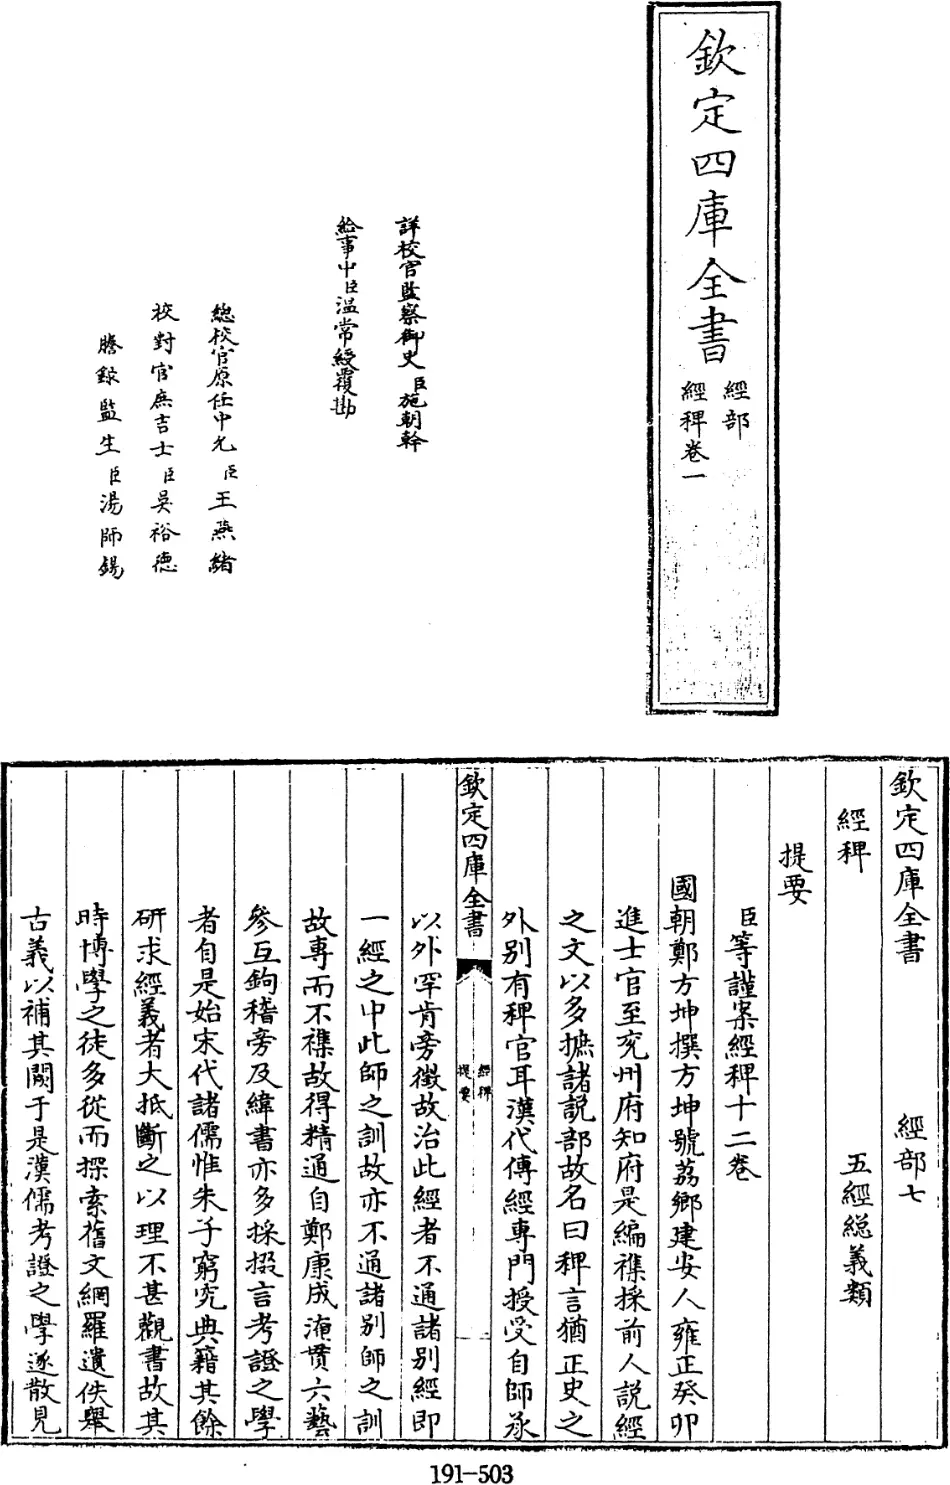 欽定四庫全書
經部
經稗卷一
詳校官監察御史臣施朝幹
給事中臣温常綬覆勘
總校官原任中允臣王燕緒
校對官庶吉士臣吳裕德
謄録監生臣湯師錫
欽定四庫全書 經部七
經稗 五經總義類
提要
臣等謹案經稗十二巻
國朝鄭方坤撰方坤號荔鄉建安人雍正癸卯
進士官至兖州府知府是編襍採前人説經
之文以多摭諸説部故名曰稗言猶正史之
外別有稗官耳漢代傳經專門授受自師承
欽定四庫全書
經稗
提要
以外罕肯旁徵故治此經者不通諸別經即
一經之中此師之訓故亦不通諸別師之訓
故專而不襍故得精通自鄭康成淹貫六藝
參互鉤稽旁及緯書亦多採掇言考證之學
者自是始宋代諸儒惟朱子窮究典籍其餘
研求經義者大抵斷之以理不甚觀書故其
時博學之徒多從而探索舊文網羅遺佚舉
古義以補其闕于是漢儒考證之學遂散見
191-503